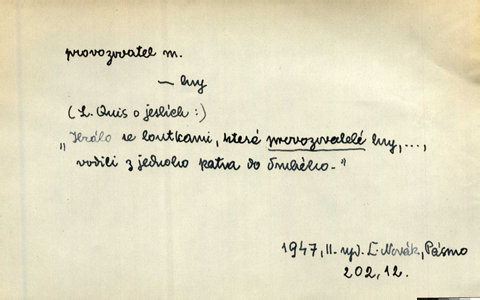 provozovatel m.
— hry
(L. Quis o jeslích :)
„Hrálo se loutkami, které provozovatelé hry, ...,
vodili z jednoho patra do druhého.“
1947, II. vyd. L. Novák, Pásmo
202, 12.